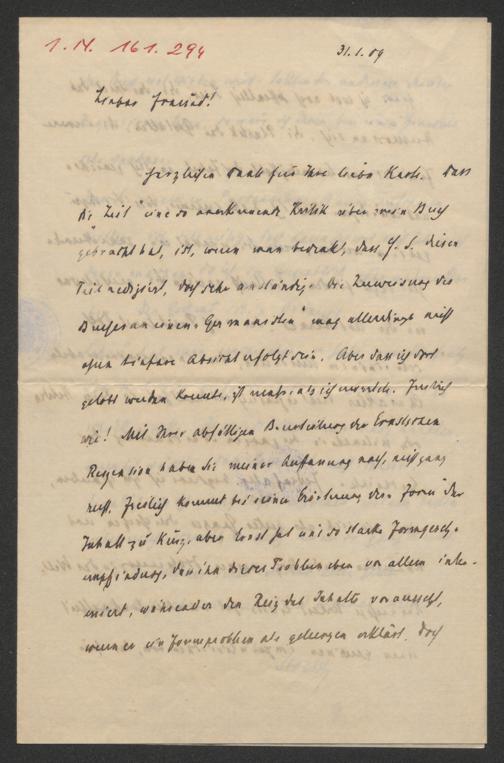 I.N. 161.294
31.1.09
Lieber Freund!
Herzlichen Dank für Ihre liebe Karte. Dass
die "Zeit" eine so anerkennende Kritik über mein Buch
gebracht hat, ist, wenn man bedenkt, dass F. S. diesen
Teil redigiert, doch sehr anständig. Die Zuweisung des
Buches an einen "Germanisten" mag allerdings nicht
ohne tiefere Absicht erfolgt sein. Aber dass ich dort
gelobt werden konnte, ist mehr, als ich
wie! Mit Ihrer abfälligen Beurteilung der
Rezension haben Sie meiner Auffassung nach, nicht ganz
recht. Freilich kommt bei seiner Erörterung der Form der
Inhalt zu kurz, aber
empfindung, dass ihn dieses Problem eben vor allem inte-
ressiert, während er den Reiz des Inhalts voraussetzt,
wenn er ein Formproblem als gelungen erklärt. Doch